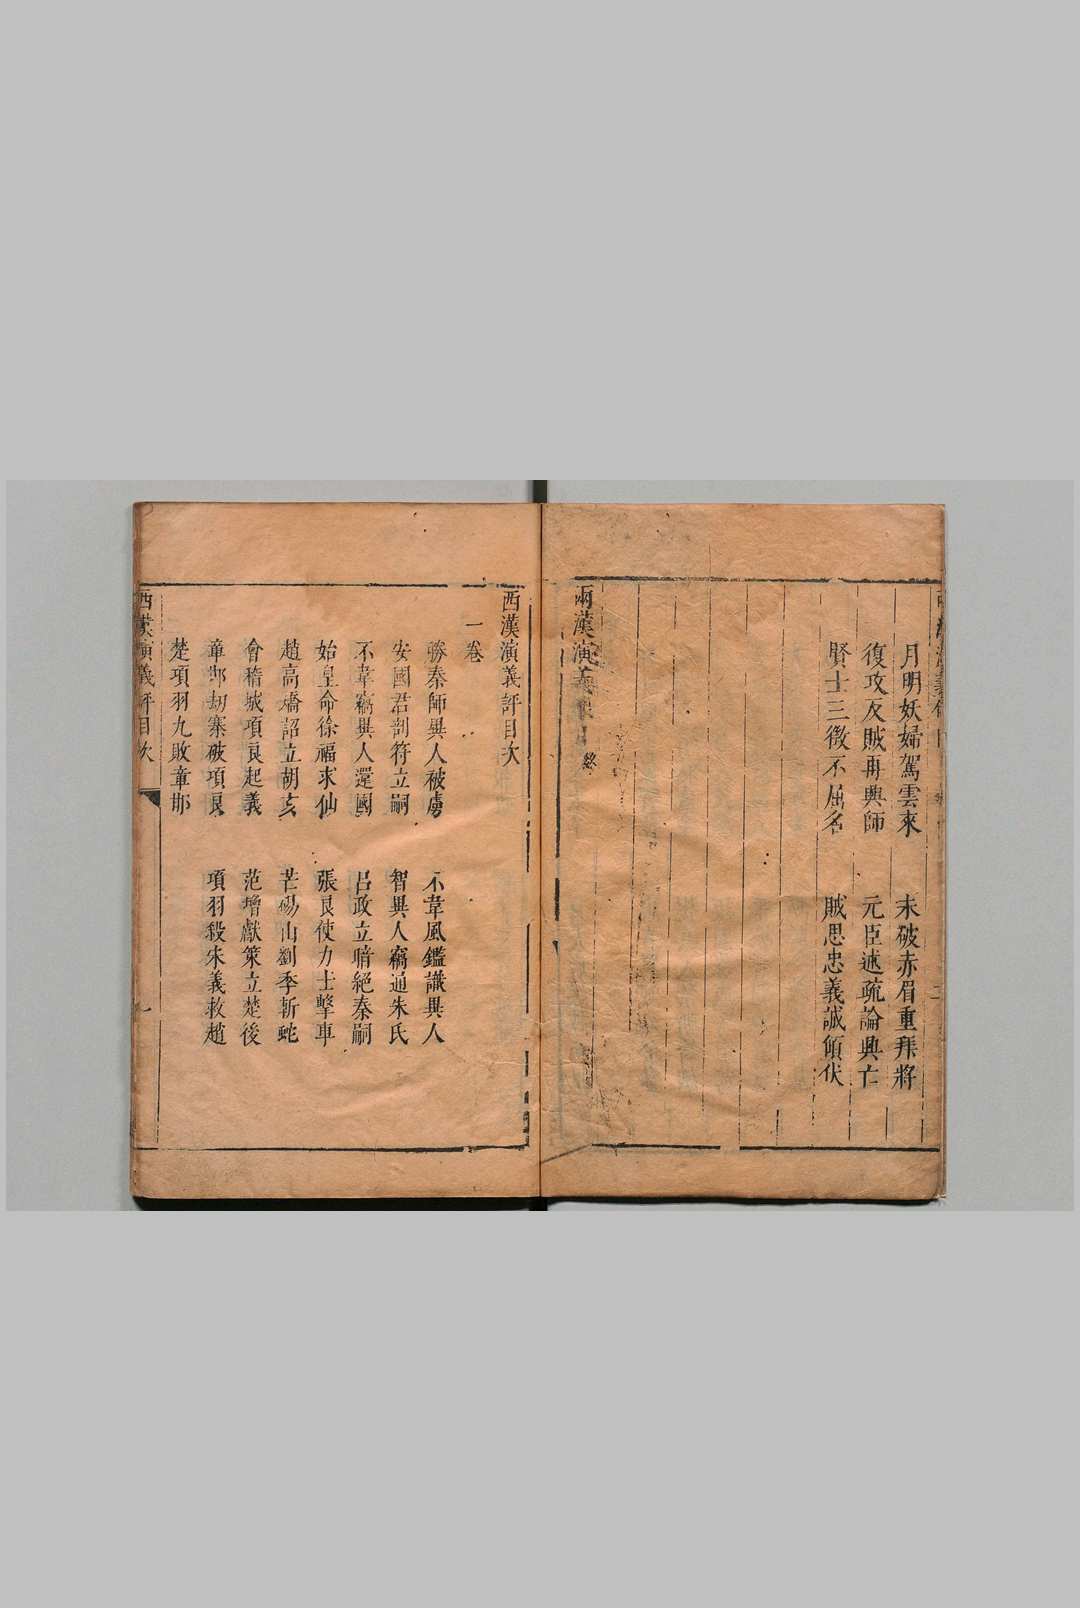 月明妖婦駕雲來　未破赤眉重拜將
復攻反賊再興師　元臣述疏論興亡
賢士三徵不屈名　賊思忠義誠傾伏
兩漢演義像目終
西漢演義評目次
一卷
勝秦師異人被虜　不韋風鑑識異人
安國君剖符立嗣　智異人竊通朱氏
不韋竊異人還國　呂政立暗絕秦嗣
始皇命徐福求仙　張良使力士擊車
趙高矯詔立胡亥　芒碭山劉季斬蛇
會稽城項良起義　范增獻策立楚後
章邯劫寨破項良　項羽殺宋義救趙
楚項羽九敗章邯
西漢演義評目次　一